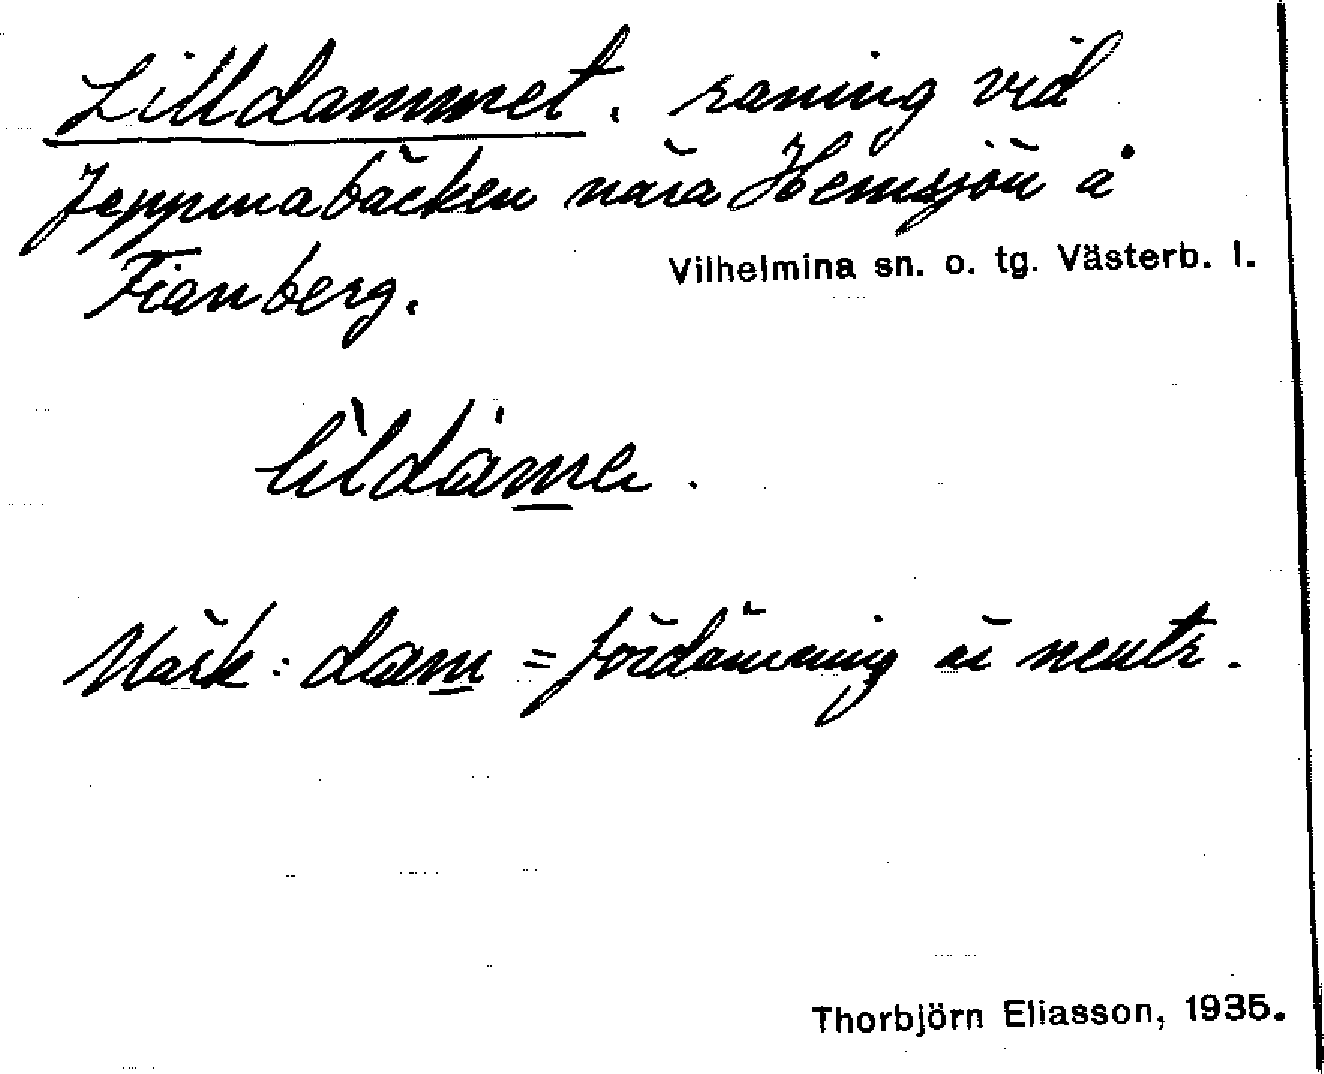 Lilldammet. raning vid
Jeppmabäcken nära Hemsjön å
Fianberg.
Vilhelmina sn. o. tg. Västerb. l.
Märk: dam = fördämning är neutr.
Thorbjörn Eliasson, 1935.